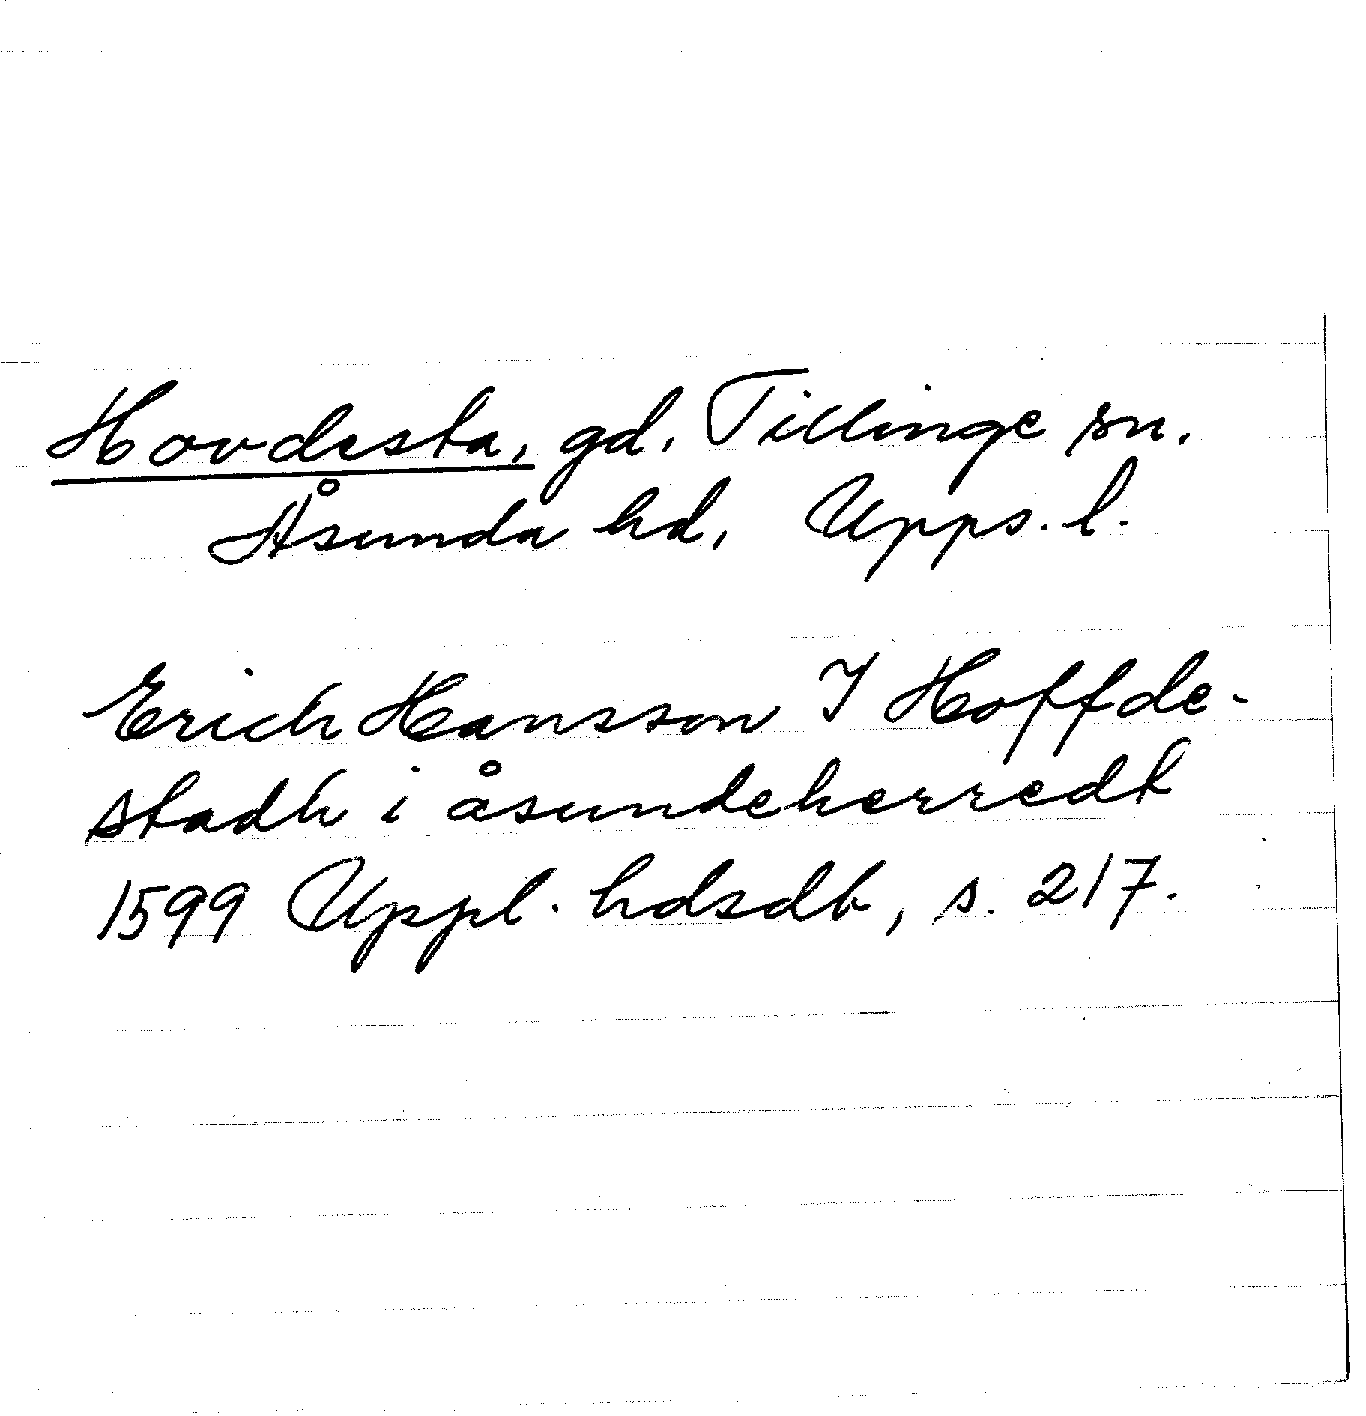 Hovdesta, gd. Tillinge sn.
Åsunda hd, Upps. l.
Erich Hansson I Hoffde-
stadh i åsundeherredt
1599 Uppl. hdsdb, s. 217.